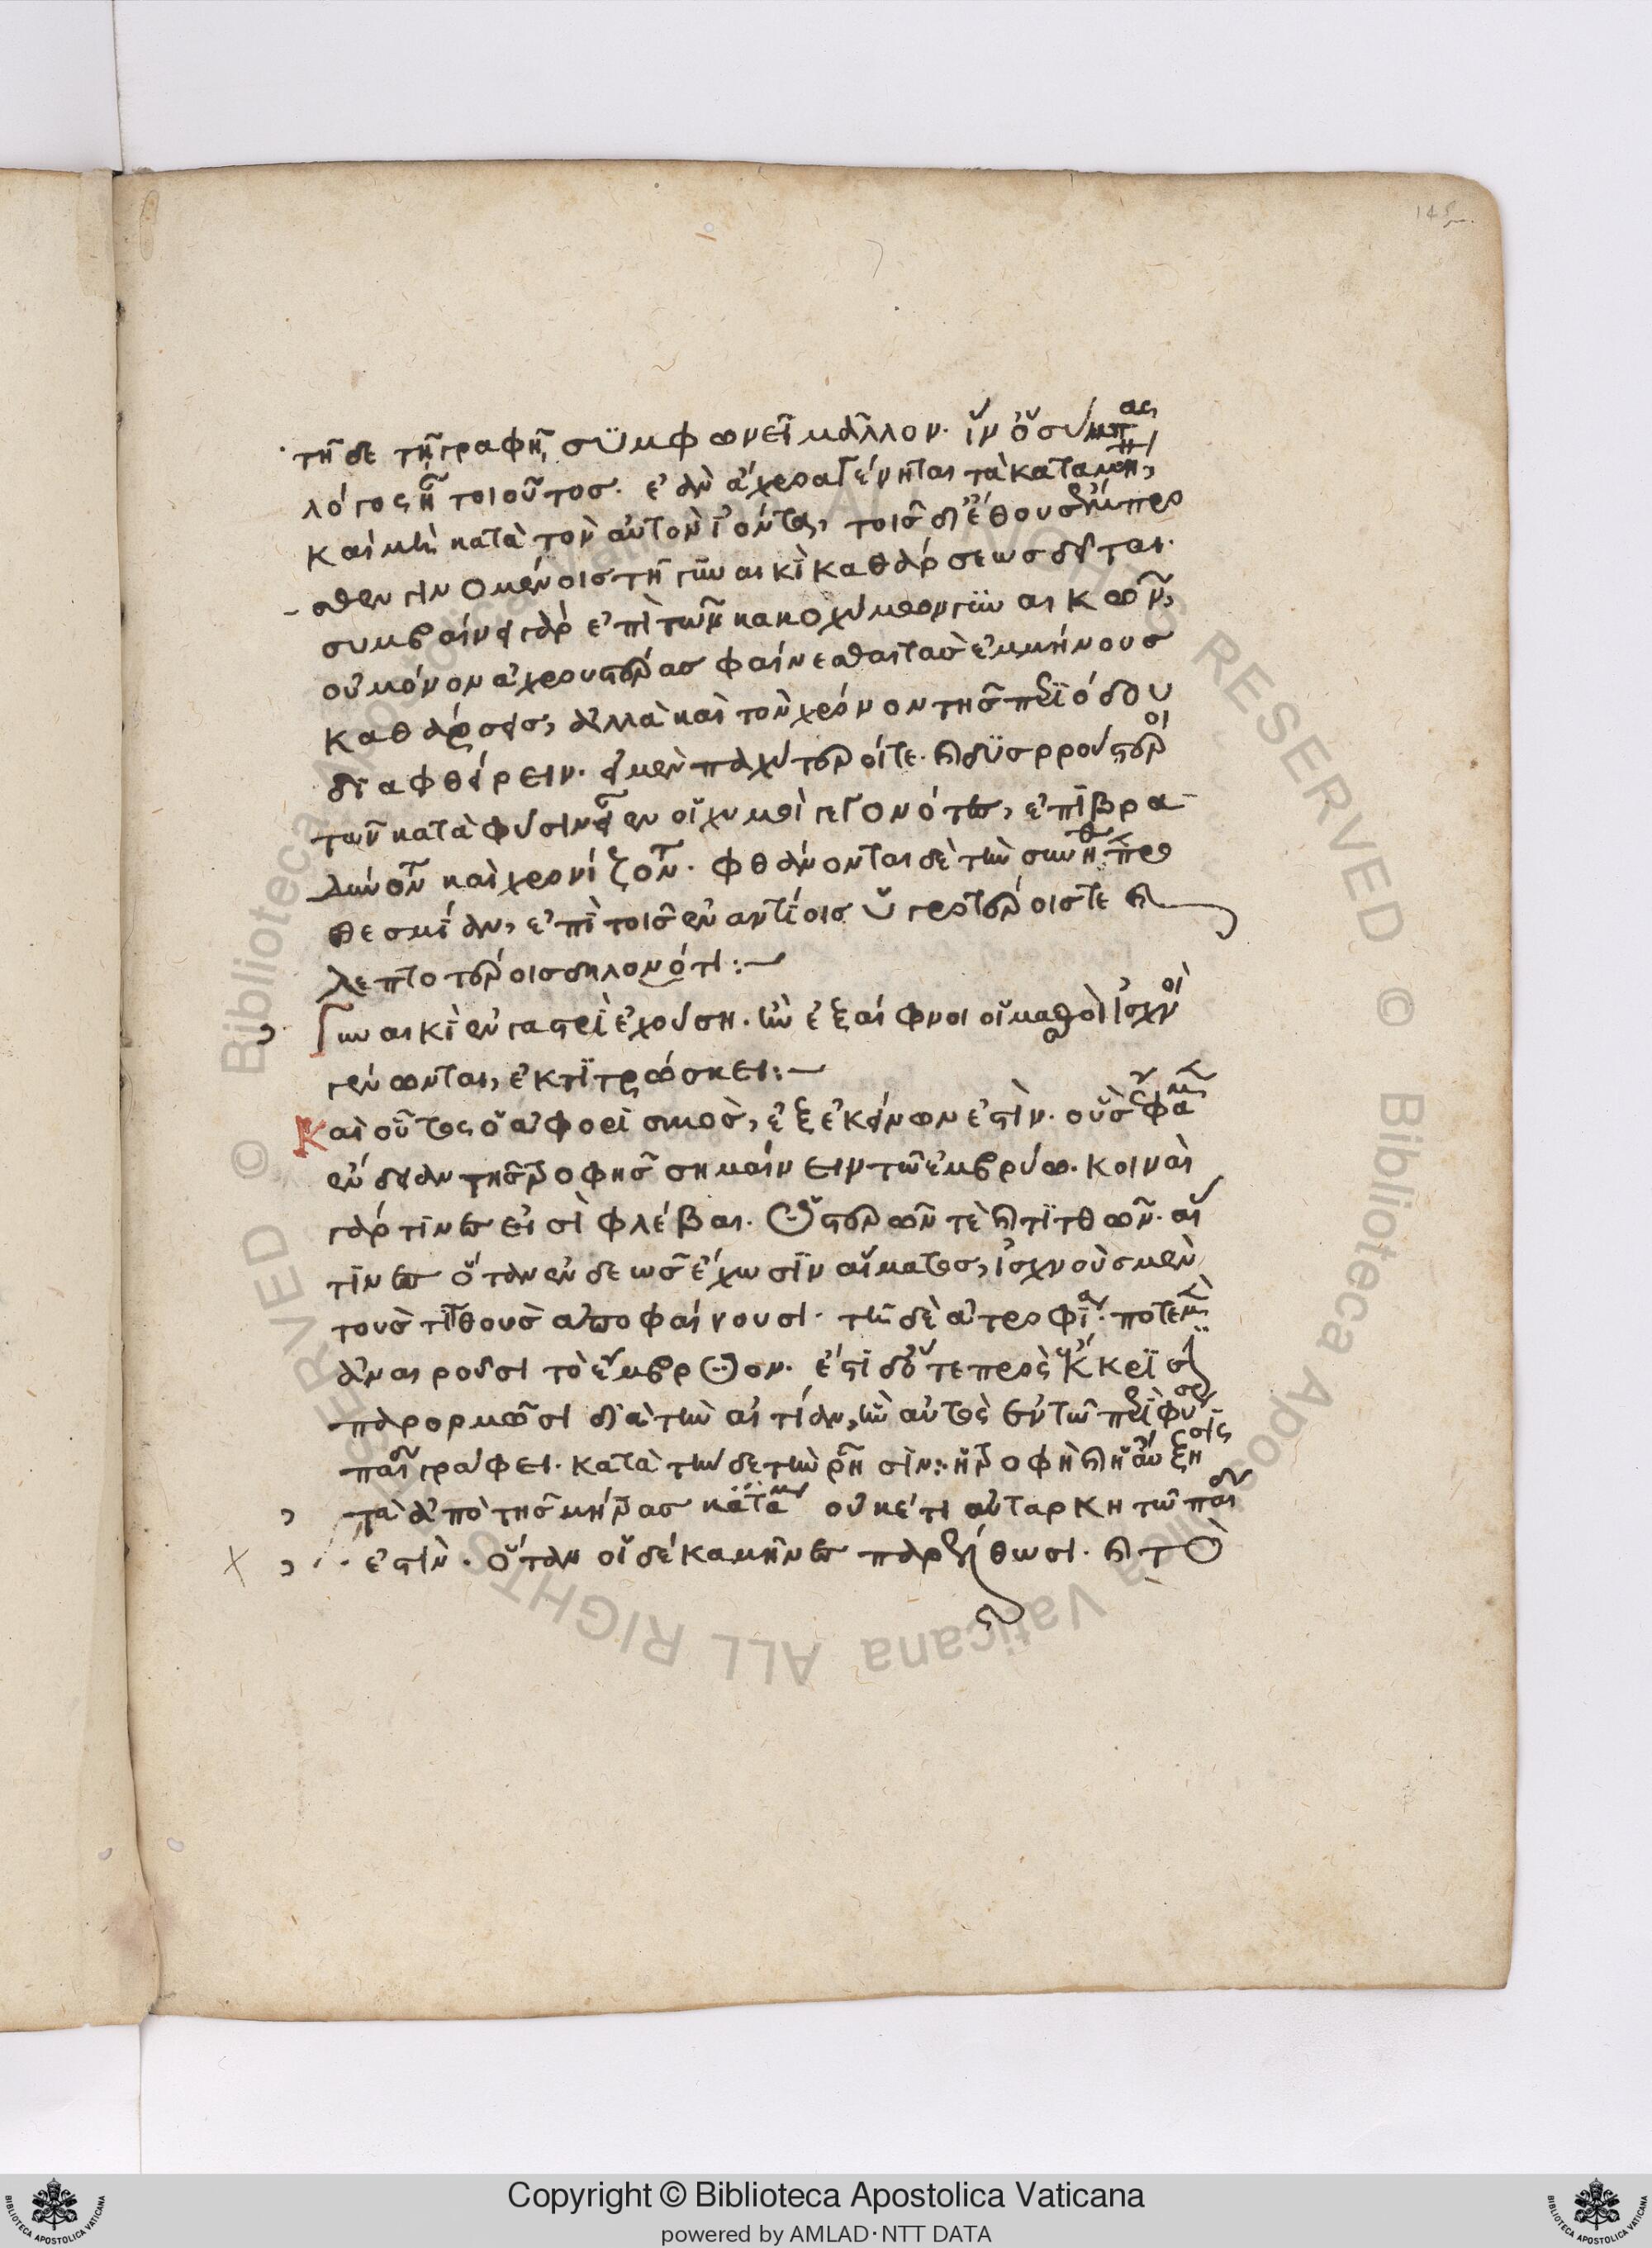 τῆδε τῆ γραφῆ, συμφωνεῖ μᾶλλον. ἵν' ὁ σύμπας
λόγος ἦ τοιοῦτος. ἐὰν ἄχροα γένηται τὰ καταμήνια,
καὶ μὴ κατὰ τὸν αὐτὸν ἰόντα, τοῖς δι' ἔθους ἔμπρο
σθεν γινομένοις τῆ γυναικὶ καθάρσεως δεῖται.
συμβαίνει γὰρ ἐπὶ τῶν κακοχύμων γυναικῶν,
οὐ μόνον ἀχρουστέρας φαίνεσθαι τὰς ἐμμήνους
καθάρσεις, ἀλλὰ καὶ τὸν χρόνον τῆς περιόδου
διαφθείρειν. εἰ μὲν παχύτεροί τε καὶ δυσρρούστεροι
τῶν κατὰ φύσιν εἶεν οἱ χυμοὶ γεγονότες, ἐπιβρα
δυνόντων καὶ χρονιζόντων. φθάνονται δὲ τὴν συνήθη προ
θεσμίαν, ἐπὶ τοῖς ἐναντίοις ὑγροτέροις τε καὶ
λεπτοτέροις δηλονότι:
Γυναικὶ ἐν γαστρὶ ἐχούση. ἢν ἐξαίφνης οἱ μασθοὶ ἰσχνοὶ
γένωνται, ἐκτιτρώσκει:
Καὶ οὗτος ὁ ἀφορισμὸς, ἐξ ἐκείνων ἐστὶν. οὓς ἔφαμεν
ἔνδειαν τῆς τροφῆς σημαίνειν τῶ ἐμβρύω. κοιναὶ
γάρ τινες εἰσὶ φλέβαι. ὑστερῶν τὲ καὶ τιτθῶν. αἵ
τινες ὅταν ἐνδεῶς ἔχωσιν αἵματος, ἰσχνοὺς μὲν
τοὺς τιτθοὺς ἀποφαίνουσι. τῆ δὲ ἀτροφία. ποτὲ μὲν
ἀναιροῦσι τὸ ἔμβρυον. ἔστι δ' ὅτε πρὸς ἔκκρισιν
παρορμῶσι διὰ τὴν αἰτίαν, ἣν αὐτὸς ἐν τῶ περὶ φύσεως
παιδίου γράφει. κατὰ τήνδε τὴν ῥῆσιν: ἡ τροφὴ καὶ ἡ αὔξησις
τὰ ἀπὸ τῆς μήτρας κατα οὐκέτι αὐτάρκη τῶ παιδίω
ἐστὶν. ὅταν οἱ δέκα μῆνες παρέλθωσι. καὶ τὸ